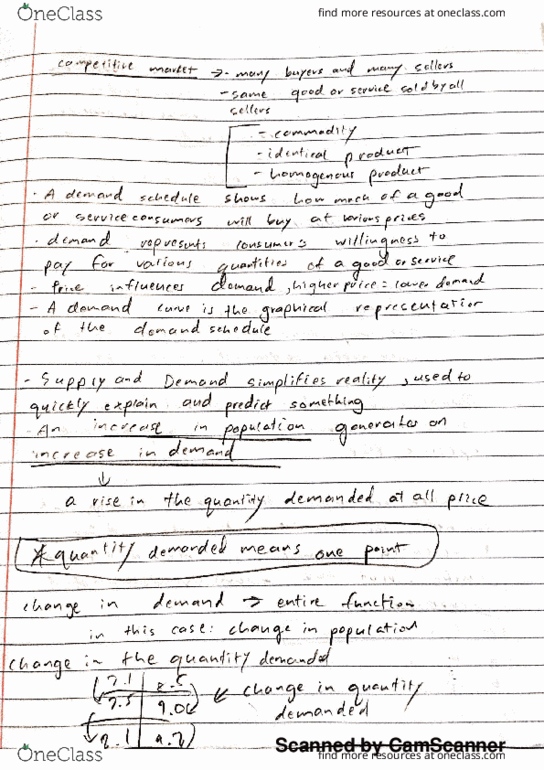 OneClass
find more resources at oneclass.com
competitive market → - many buyers and many sellers
- same good or service sold by all
sellers
- commodity
- identical product
- homogenous product
- A demand schedule shows how much of a good
or service consumers will buy at various prices
- demand represents consumers willingness to
pay for various quantities of a good or service
- Price influences demand, higher price = lower demand
- A demand curve is the graphical representation
of the demand schedule
- Supply and Demand simplifies reality, used to
quickly explain and predict something
- An increase in population generates an
increase in demand
↓
a rise in the quantity demanded at all price
* quantity demanded means one point
change in demand → entire function
in this case: change in population
change in the quantity demanded
change in quantity
demanded
Scanned by CamScanner
OneClass
find more resources at oneclass.com